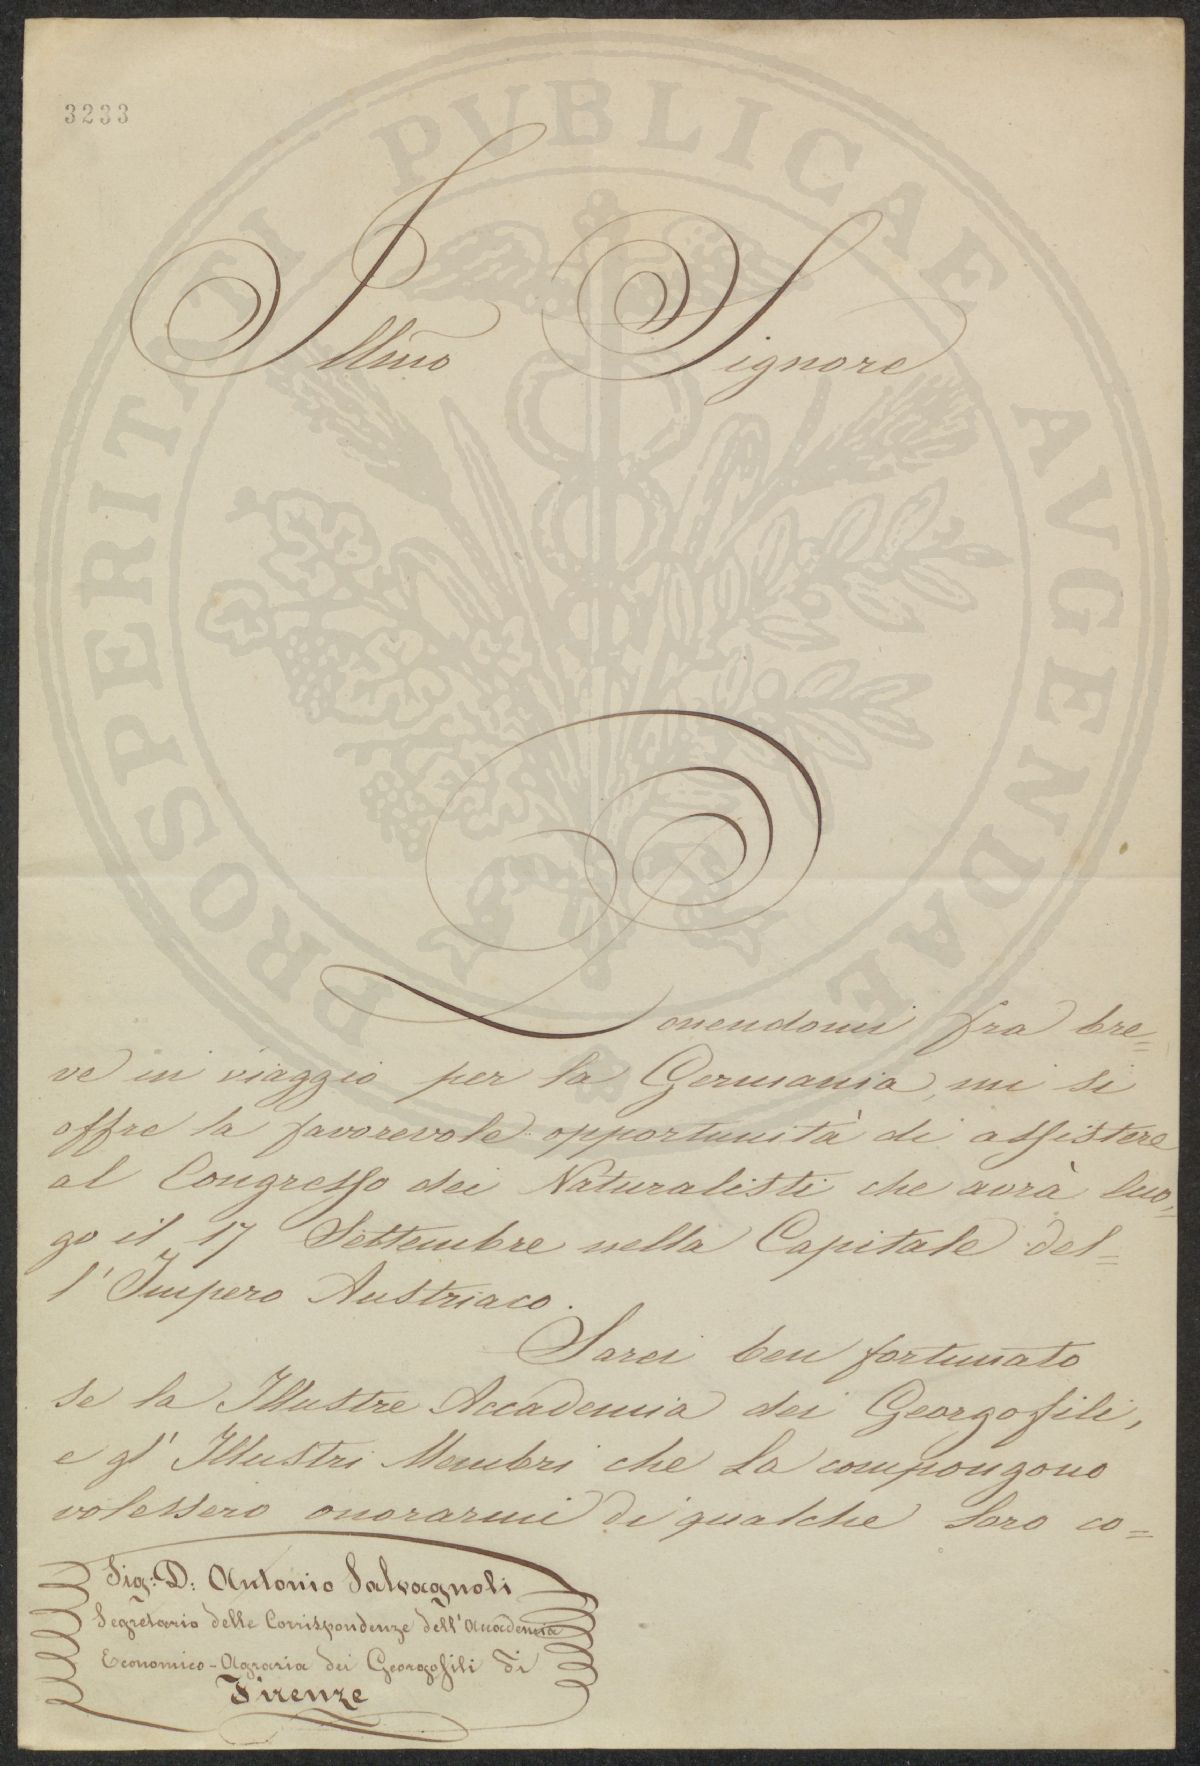 3233
PROSPERITATI PUBLICAE AVGENDAE
Illmo Signore
Ponendomi fra bre=
ve in viaggio per la Germania, mi si
offre la favorevole opportunità di assistere
al Congresso dei Naturalisti che avrà luo,=
go il 17 Settembre nella Capitale del=
l'Impero Austriaco.
Sarei ben fortunato
se la Illustre Accademia dei Georgofili,
e gl' Illustri Membri che La compongono
volessero onorarmi di qualche loro co=
Sig: D: Antonio Salvagnoli
Segretario delle Corrispondenze dell'Accademia
Economico-Agraria dei Georgofili di
Firenze